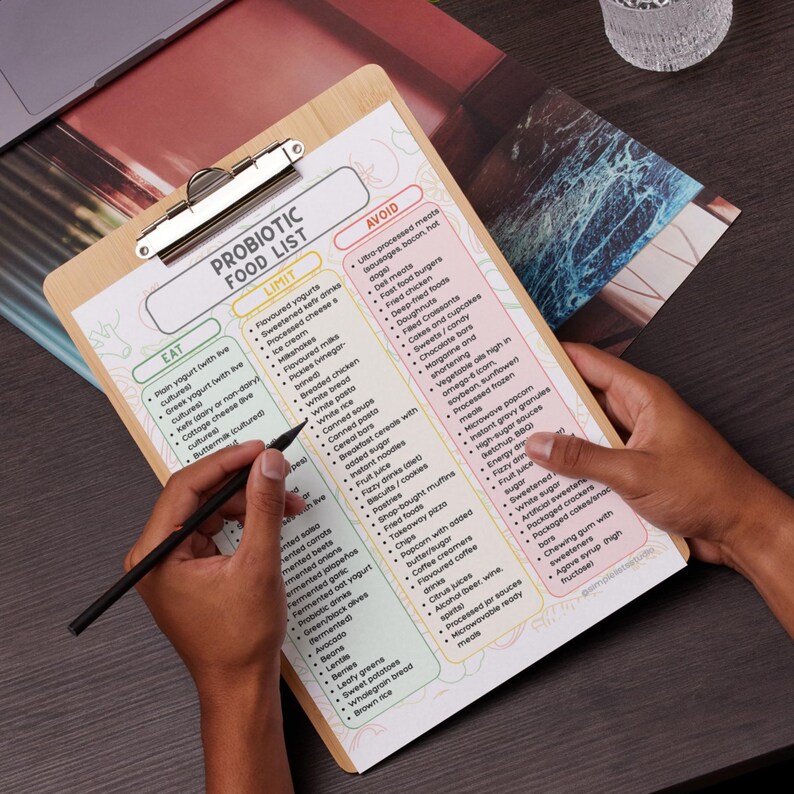 PROBIOTIC
FOOD LIST
EAT
• Plain yogurt (with live
cultures)
• Greek yogurt (with live
cultures)
• Kefir (dairy or non-dairy)
• Cottage cheese (live
cultures)
• Buttermilk (cultured)
with live
salsa
carrots
beets
Fermented onions
Fermented jalapeños
Fermented garlic
Fermented oat yogurt
• Probiotic drinks
• Green/black olives
(fermented)
• Avocado
• Beans
• Lentils
• Berries
• Leafy greens
• Sweet potatoes
• Wholegrain bread
• Brown rice
LIMIT
• Flavoured yogurts
• Sweetened kefir drinks
• Processed cheese s
• Ice cream
• Milkshakes
• Flavoured milks
• Pickles (vinegar-
brined)
• Breaded chicken
• White bread
• White pasta
• White rice
• Canned soups
• Canned pasta
• Cereal bars
• Breakfast cereals with
added sugar
• Instant noodles
• Fruit juice
• Fizzy drinks (diet)
• Biscuits / cookies
• Pastries
• Shop-bought muffins
• Fried foods
• Takeaway pizza
• Chips
• popcorn with added
butter/sugar
• Coffee creamers
• Flavoured coffee
drinks
• Citrus juices
• Alcohol (beer, wine,
spirits)
• Processed jar sauces
• Microwavable ready
meals
AVOID
• Ultra-processed meats
(sausages, bacon, hot
dogs)
• Deli meats
• Fast food burgers
• Fried chicken
• Deep-fried foods
• Doughnuts
• Filled Croissants
• Cakes and cupcakes
• Sweets / candy
• Chocolate bars
• Margarine and
shortening
• Vegetable oils high in
omega-6 (corn,
soybean, sunflower)
• Processed frozen
meals
• Microwave popcorn
• Instant gravy granules
• High-sugar sauces
(ketchup, BBQ)
• Energy
• Fizzy
• Fruit
sugar
• Sweetened
• White sugar
• Artificial
• Packaged crackers
• Packaged cakes/snack
bars
• Chewing gum with
sweeteners
• Agave syrup (high
fructose)
@simplelistsstudio